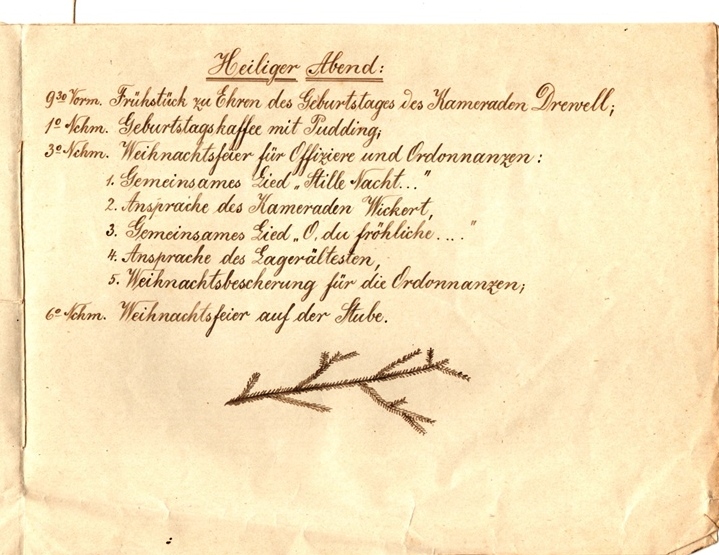 Heiliger Abend:
9³⁰ Vorm. Frühstück zu Ehren des Geburtstages des Kameraden Drewell;
1⁰ Nchm. Geburtstagskaffee mit Pudding;
3⁰ Nchm. Weihnachtsfeier für Offiziere und Ordonnanzen:
1. Gemeinsames Lied „Stille Nacht..."
2. Ansprache des Kameraden Wickert,
3. Gemeinsames Lied „O, du fröhliche...."
4. Ansprache des Lagerältesten,
5. Weihnachtsbescherung für die Ordonnanzen;
6⁰ Nchm. Weihnachtsfeier auf der Stube.